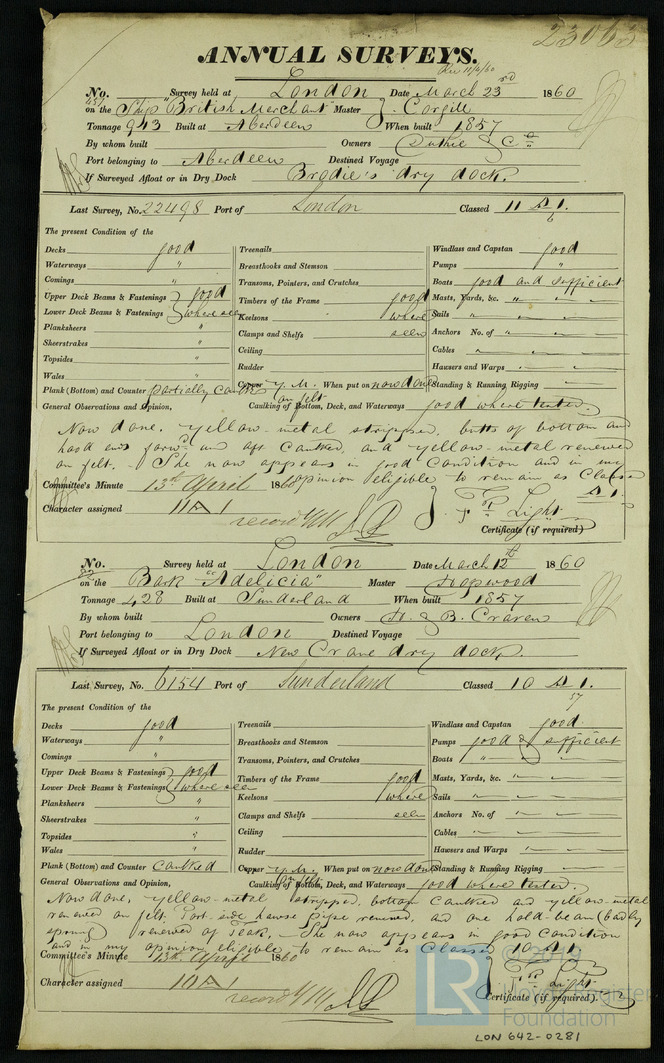 23063
ANNUAL SURVEYS.
Rec 11/4/60
No. Survey held at London Date March 23rd 1860
on the Ship "British Merchant" Master J. Corgill
Tonnage 943 Built at Aberdeen When built 1857
By whom built Owners Duthie & Co
Port belonging to Aberdeen Destined Voyage
If Surveyed Afloat or in Dry Dock Brodie's dry dock.
Last Survey, No. 22498 Port of London Classed 11 A 1.
6
The present Condition of the
Decks good Treenails Windlass and Capstan good
Waterways " Breasthooks and Stemson Pumps "
Comings " Transoms, Pointers, and Crutches Boats good and sufficient
Upper Deck Beams & Fastenings good Timbers of the Frame good Masts, Yards, &c. " " "
Lower Deck Beams & Fastenings where seen Keelsons where Sails
Planksheers " Clamps and Shelfs seen Anchors No. of "
Sheerstrakes " Ceiling Cables "
Topsides " Rudder Hawsers and Warps "
Wales " Copper Y. M. on felt When put on now done Standing & Running Rigging
Plank (Bottom) and Counter partially caulked
General Observations and Opinion, Caulking of Bottom, Deck, and Waterways good where tested.
Now done, yellow-metal stripped, butts of bottom and
hood ends forwd and aft caulked, and yellow-metal renewed
on felt. - She now appears in good condition and in my
opinion eligible to remain as Classed
A 1.
Committee's Minute 13th April 1860
Character assigned 11 A 1
Light
Certificate (if required)
No. Survey held at London Date March 12th 1860
on the Bark "Adelicia" Master Hopwood
Tonnage 428 Built at Sunderland When built 1857
By whom built Owners H. & B. Craven
Port belonging to London Destined Voyage
If Surveyed Afloat or in Dry Dock New Crane dry dock.
Last Survey, No. 6154 Port of Sunderland Classed 10 A 1.
57
The present Condition of the
Decks good Treenails Windlass and Capstan good
Waterways " Breasthooks and Stemson Pumps good & sufficient
Comings " Transoms, Pointers, and Crutches Boats "
Upper Deck Beams & Fastenings good Timbers of the Frame good Masts, Yards, &c. "
Lower Deck Beams & Fastenings where seen Keelsons where Sails "
Planksheers " Clamps and Shelfs seen Anchors No. of "
Sheerstrakes " Ceiling Cables "
Topsides " Rudder Hawsers and Warps "
Wales " Copper Y. M. on felt When put on now done Standing & Running Rigging
Plank (Bottom) and Counter caulked
General Observations and Opinion, Caulking of Bottom, Deck, and Waterways good where tested.
Now done, yellow-metal stripped, bottom caulked and yellow-metal
renewed on felt, Port side hawse pipe renewed, and one hold-beam (badly
sprung) renewed of Teak, - She now appears in good condition
and in my opinion eligible to remain as Classed 10 A 1
Committee's Minute 13th April 1860
Character assigned 10 A 1
Light
Certificate (if required).
© 2019
LR
Lloyd's Register
Foundation
LON 642-0281